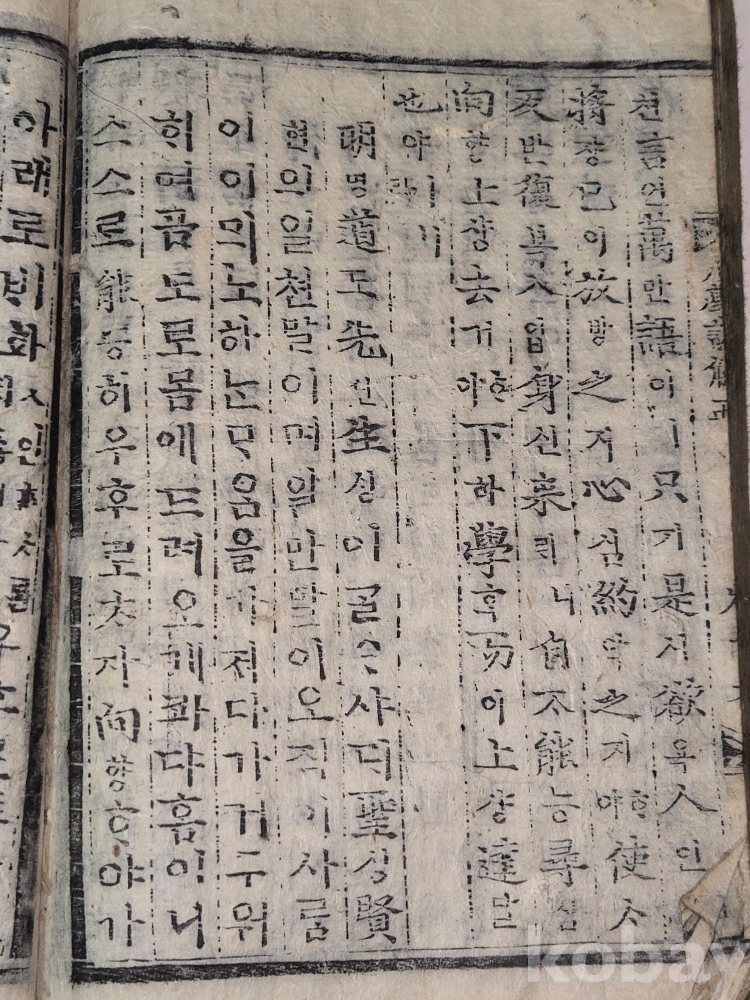 쳔言언萬만語어ㅣ只지是시欲욕人인
將쟝已이放방之지心심約약之지ᄒᆞ야使ᄉᆞ
反반復복入입身신來ᄅᆡ니自ᄌᆞ能능尋심
向향上샹去거ᄒᆞ야下하學ᄒᆞᆨ而이上샹達달
也야ㅣ라
明명道도先션生ᄉᆡᆼ이ᄀᆞᆯᄋᆞ샤ᄃᆡ聖셩賢
현의일쳔말이며일만말이오직이사ᄅᆞᆷ
이이믜노하ᄂᆞᆫᄆᆞᄋᆞᆷ을가져다가거두워
히여곰도로몸애드려오게과댜흠이니
스스로能능히우후로ᄎᆞ자向향ᄒᆞ야가
아래로비화
kobay